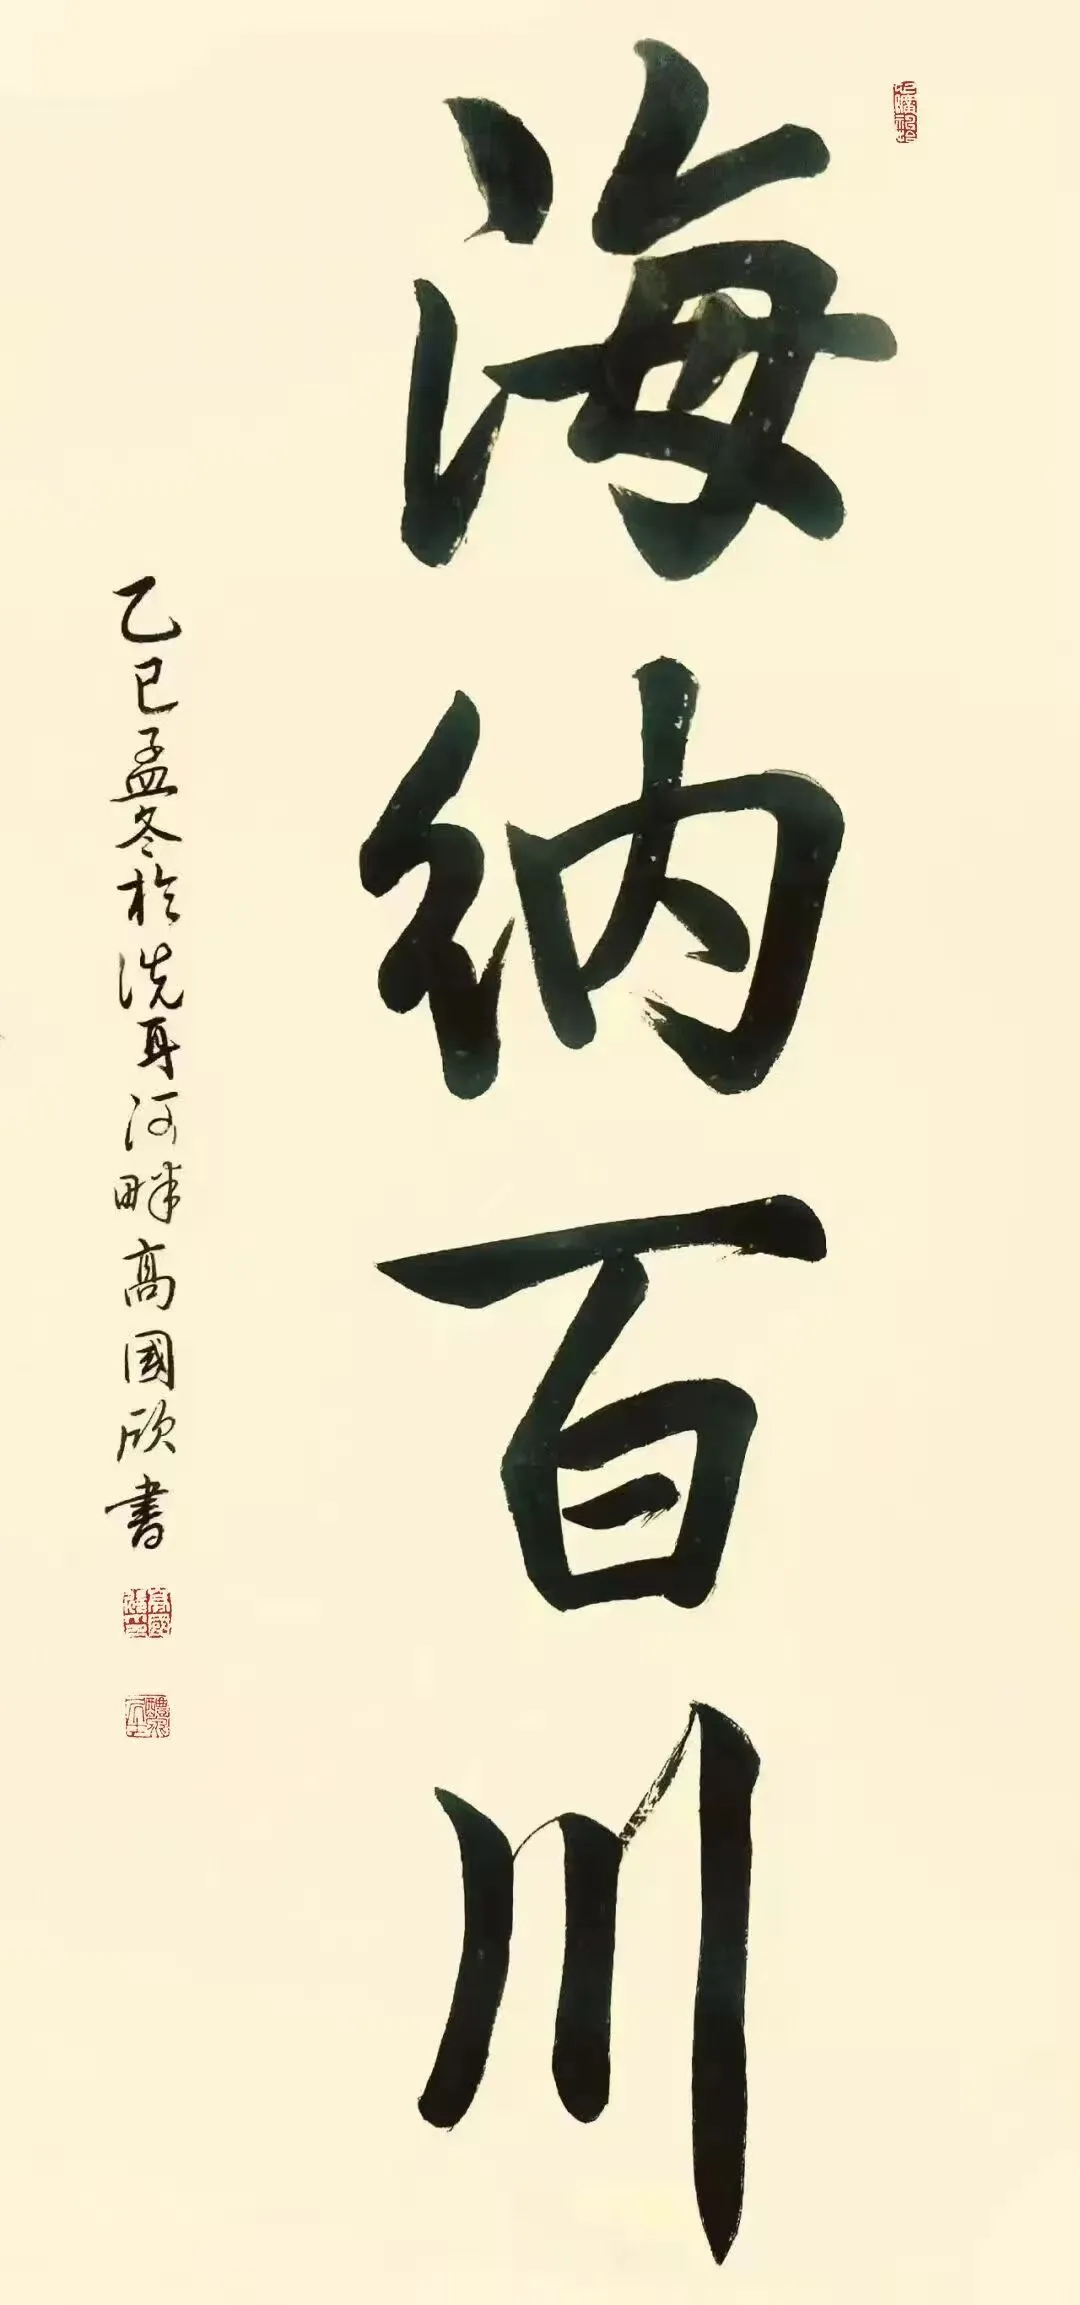 海纳百川
乙巳孟冬於洗耳河畔高國欣書